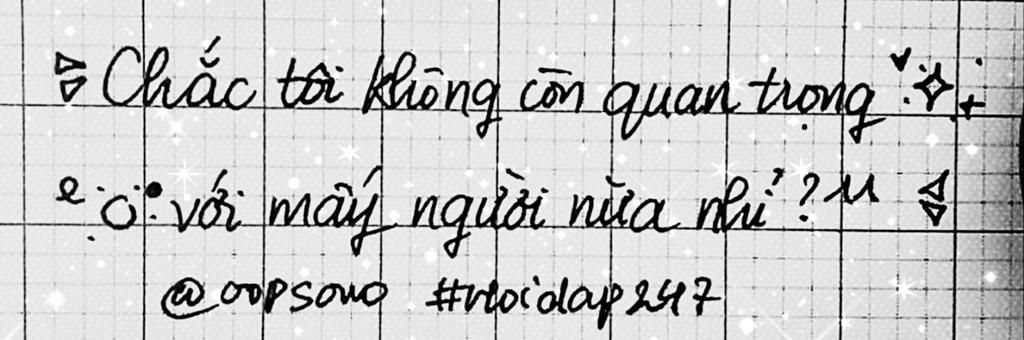 Chắc tôi không còn quan trọng
với mấy người nữa nhỉ?
@oopsouo #ntoidap247